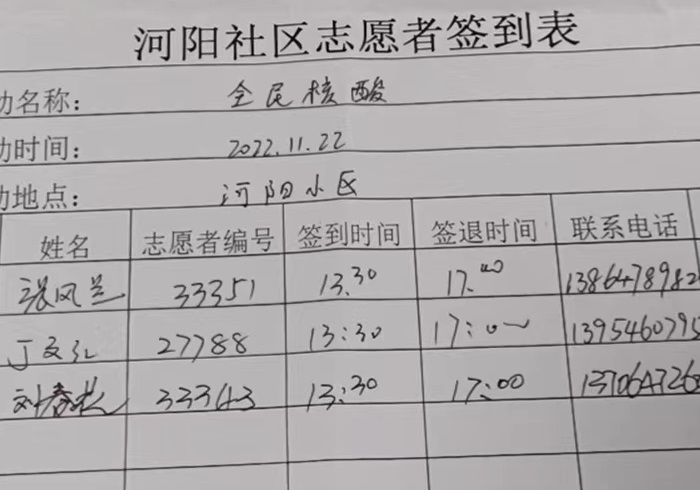 河阳社区志愿者签到表
动名称： 全民核酸
动时间： 2022.11.22
动地点： 河阳小区
姓名 志愿者编号 签到时间 签退时间 联系电话
张风兰 33351 13.30 17.00 1386478982
丁文汇 27788 13:30 17:00 1395460795
刘春 33343 13:30 17:00 1370647326